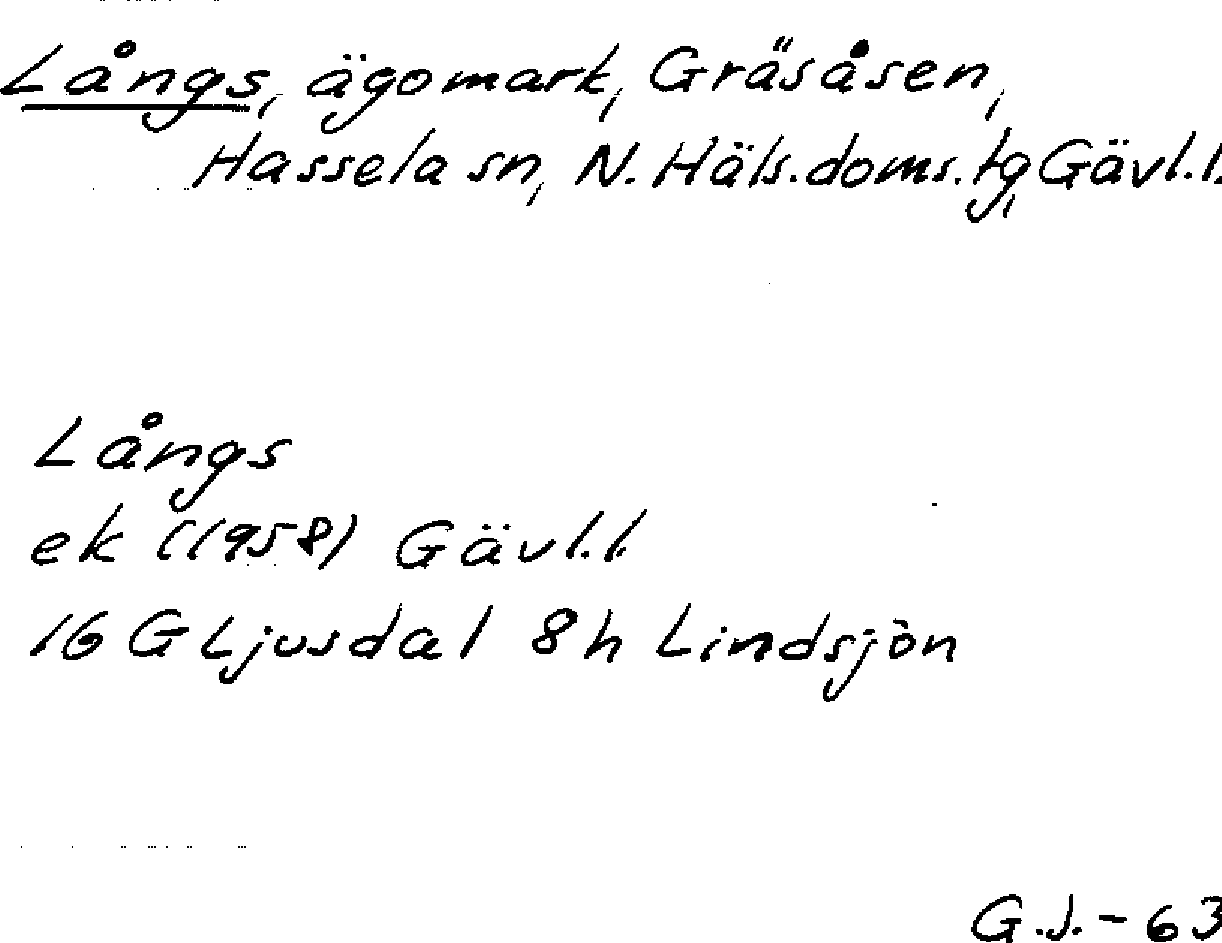 Långs, ägomark, Gräsåsen,
Hassela sn, N. Häls. doms. tg, Gävl.l.
Långs
ek (1958) Gävl.l.
16 G Ljusdal 8h Lindsjön
G.J.-63